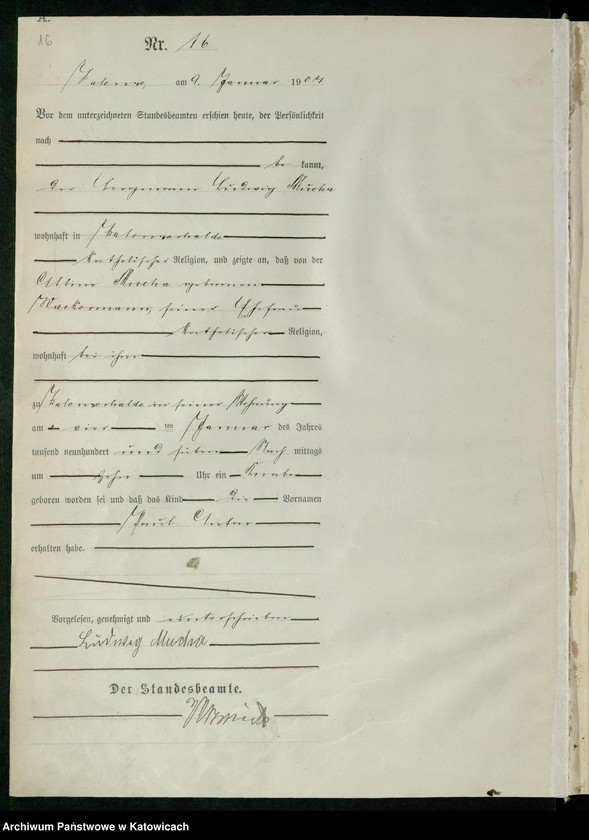 A.
16
Nr. 16
am 9. Januar 190
Vor dem unterzeichneten Standesbeamten erschien heute, der Persönlichkeit
nach
be kannt,
der Bergmann Ludwig Mucha
wohnhaft in
katholischer Religion, und zeigte an, daß von der
Albine Mucha geborenen
seiner Ehefrau
katholischer Religion,
wohnhaft bei ihm
zu in seiner Wohnung
am vier ten Januar des Jahres
tausend neunhundert und sieben Nach mittags
um zehn Uhr ein Knabe
geboren worden sei und daß das Kind die Vornamen
Paul
erhalten habe.
Vorgelesen, genehmigt und unterschrieben
Ludwig Mucha
Der Standesbeamte.
Archiwum Państwowe w Katowicach